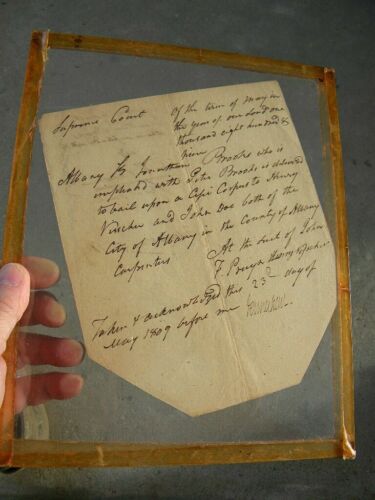 Supreme Court Of the term of May in
the year of our Lord one
thousand eight hundred &
nine
Albany Ss Jonathan Brooks who is
impleaded with Peter Brooks is delivered
to bail upon a Cepi Corpus to Henry
Visscher and John Doe both of the
City of Albany in the County of Albany
Carpenters
At the Suit of John
F. Pruyn
Taken & acknowledged this 23d day of
May 1809 before me